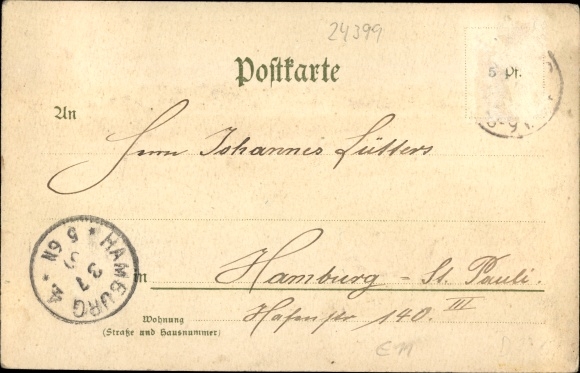 24399
Postkarte
5 Pf.
An
Herrn Johannes Lütters
HAMBURG 4.
in Hamburg - St. Pauli.
Wohnung
(Straße und Hausnummer)
Hafenstr 140. III
EM